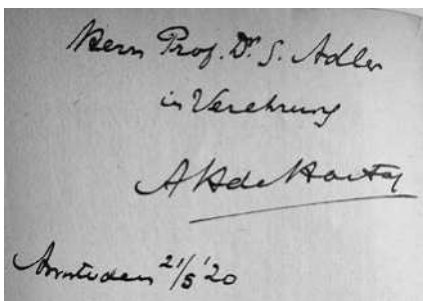 Herrn Prof. Dr. S. Adler
in Verehrung
A H de Hartog
Amsterdam 21/5 '20